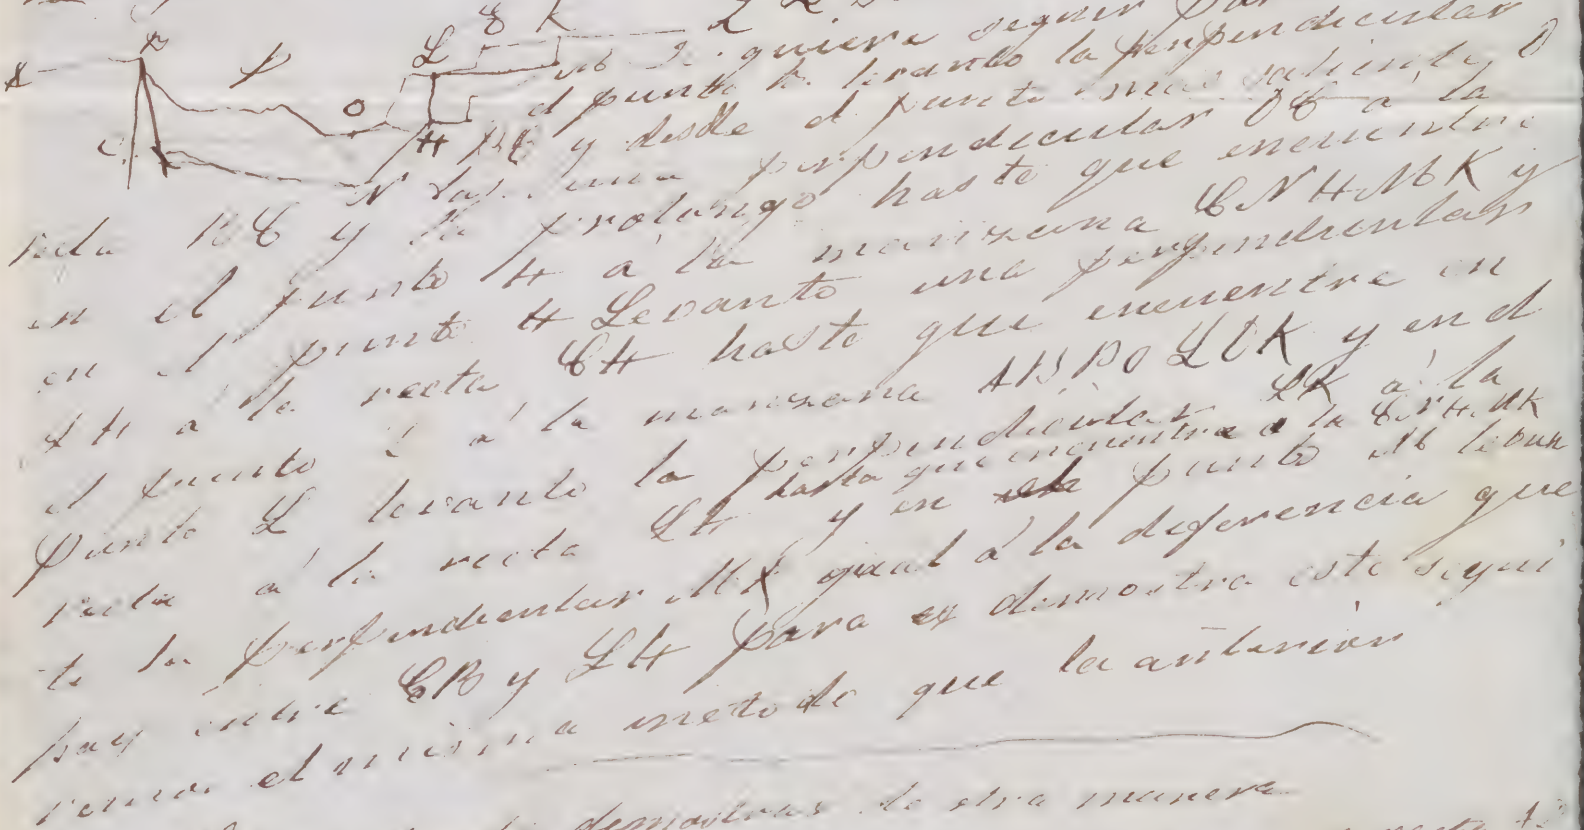 se quiere seguir por
el punto B levanto la perpendicular
BC y desde el punto mas saliente O
una perpendicular OC a la
recta BC y la prolongo haste que encuentre
en el punto H á la manzana CNHMK y
en el punto H Levanto una perpendicular
LH a la recta CH haste que encuentre en
el punto L a la manzana ABPOLEK y en el
punto L levanto la perpendicular LK á la
hasta que encuentre a la CNHMK
recta á la recta LH y en punto M levan
te la perpendicular MX igual á la diferencia que
hay entre CB y LH para demostra este segui
remos el misma metodo que la anterior
demostrar de otra manera
B
P
O
L
E K
H
N